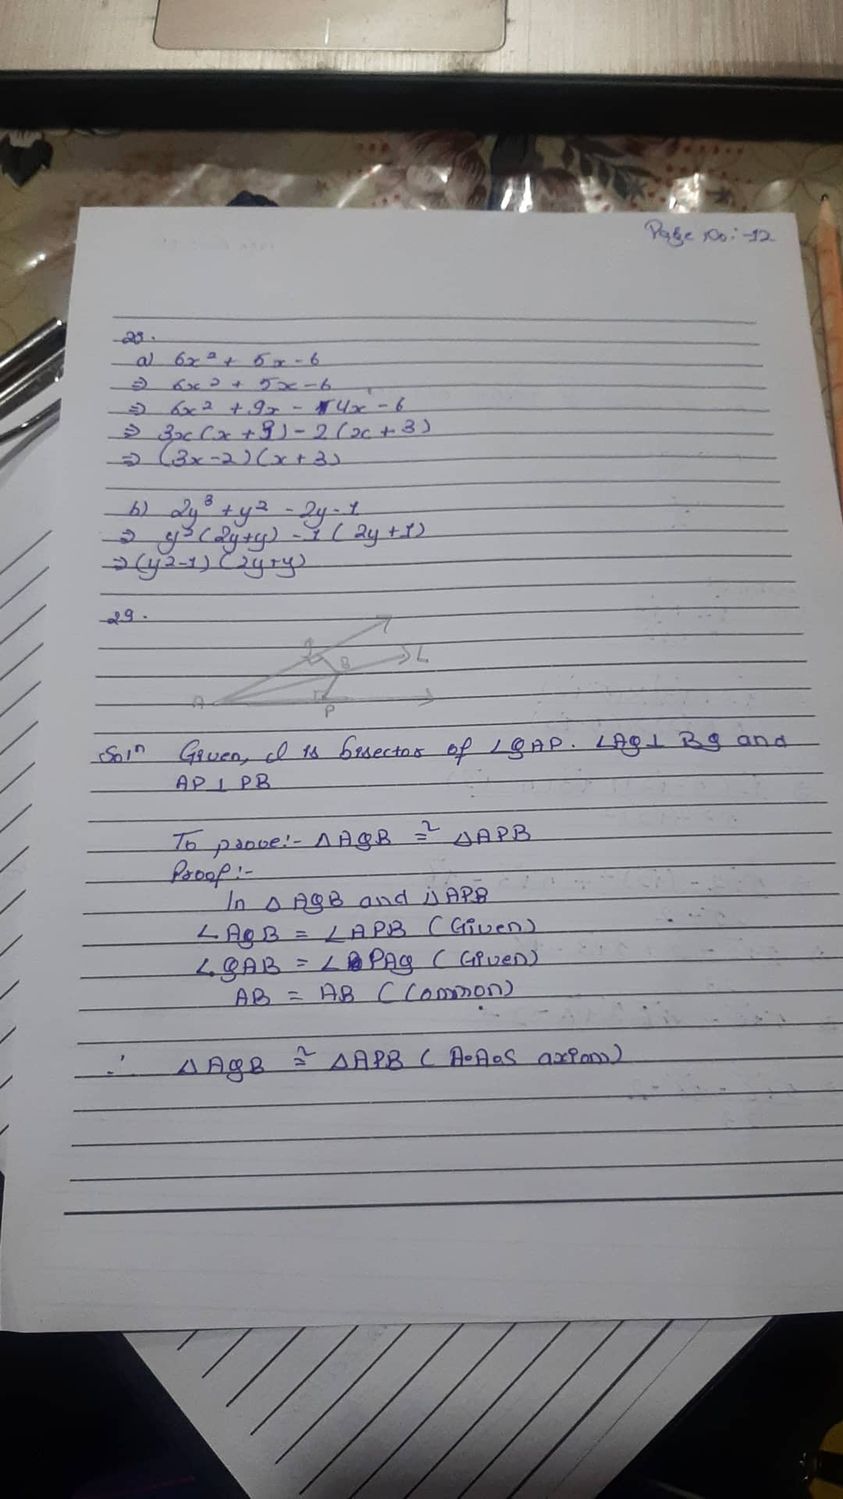 Page No:-12
28.
a) 6x² + 5x - 6
⇒ 6x² + 5x - 6
⇒ 6x² + 9x - 4x - 6
⇒ 3x(x + 9) - 2(x + 3)
⇒ (3x-2)(x+3)
b) 2y³ + y² - 2y - 1
⇒ y²(2y+y) - 1(2y+1)
⇒ (y2-1)(2y+y)
29.
Q
B L
A
P
Solⁿ Given, l is bisector of ∠QAP. ∠AQ⊥ BQ and
AP ⊥ PB
To prove:- △AQB ≅ △APB
Proof:-
In △AQB and △APB
∠AQB = ∠APB (Given)
∠QAB = ∠PAQ (Given)
AB = AB (Common)
∴ △AQB ≅ △APB (A.A.S axiom)